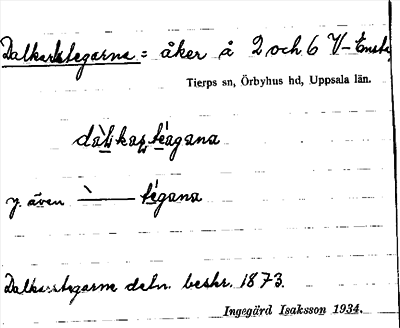 Dalkarlstegarne = åker å 2 och 6 V-Ensta,
Tierps sn, Örbyhus hd, Uppsala län.
dàlkaɽ téagana
y. även ` —— tégana
Dalkarlstegarne deln. beskr. 1873.
Ingegärd Isaksson 1934.